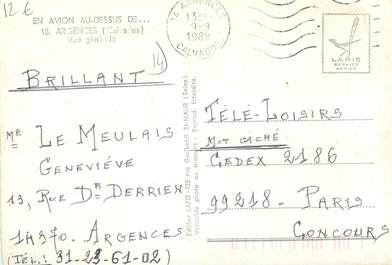 12 €
EN AVION AU-DESSUS DE...
18. ARGENCES (Calvados)
Vue générale
14 ARGENCES
13H
9-9
1989
CALVADOS
LAPIE
SERVICE
AERIEN
BRILLANT
14)
ME LE MEULAIS
GENEVIÈVE
13, RUE DR DERRIEN
14370. ARGENCES
(TÉL.: 31-23-61-02)
TÉLÉ-LOISIRS
MOT CACHÉ
CEDEX 2186
99218 - PARIS
CONCOURS
Edition LAPIE - 125 rue Garibaldi St-MAUR (Seine)
Véritable photo au bromure - Reprod. Interdite.